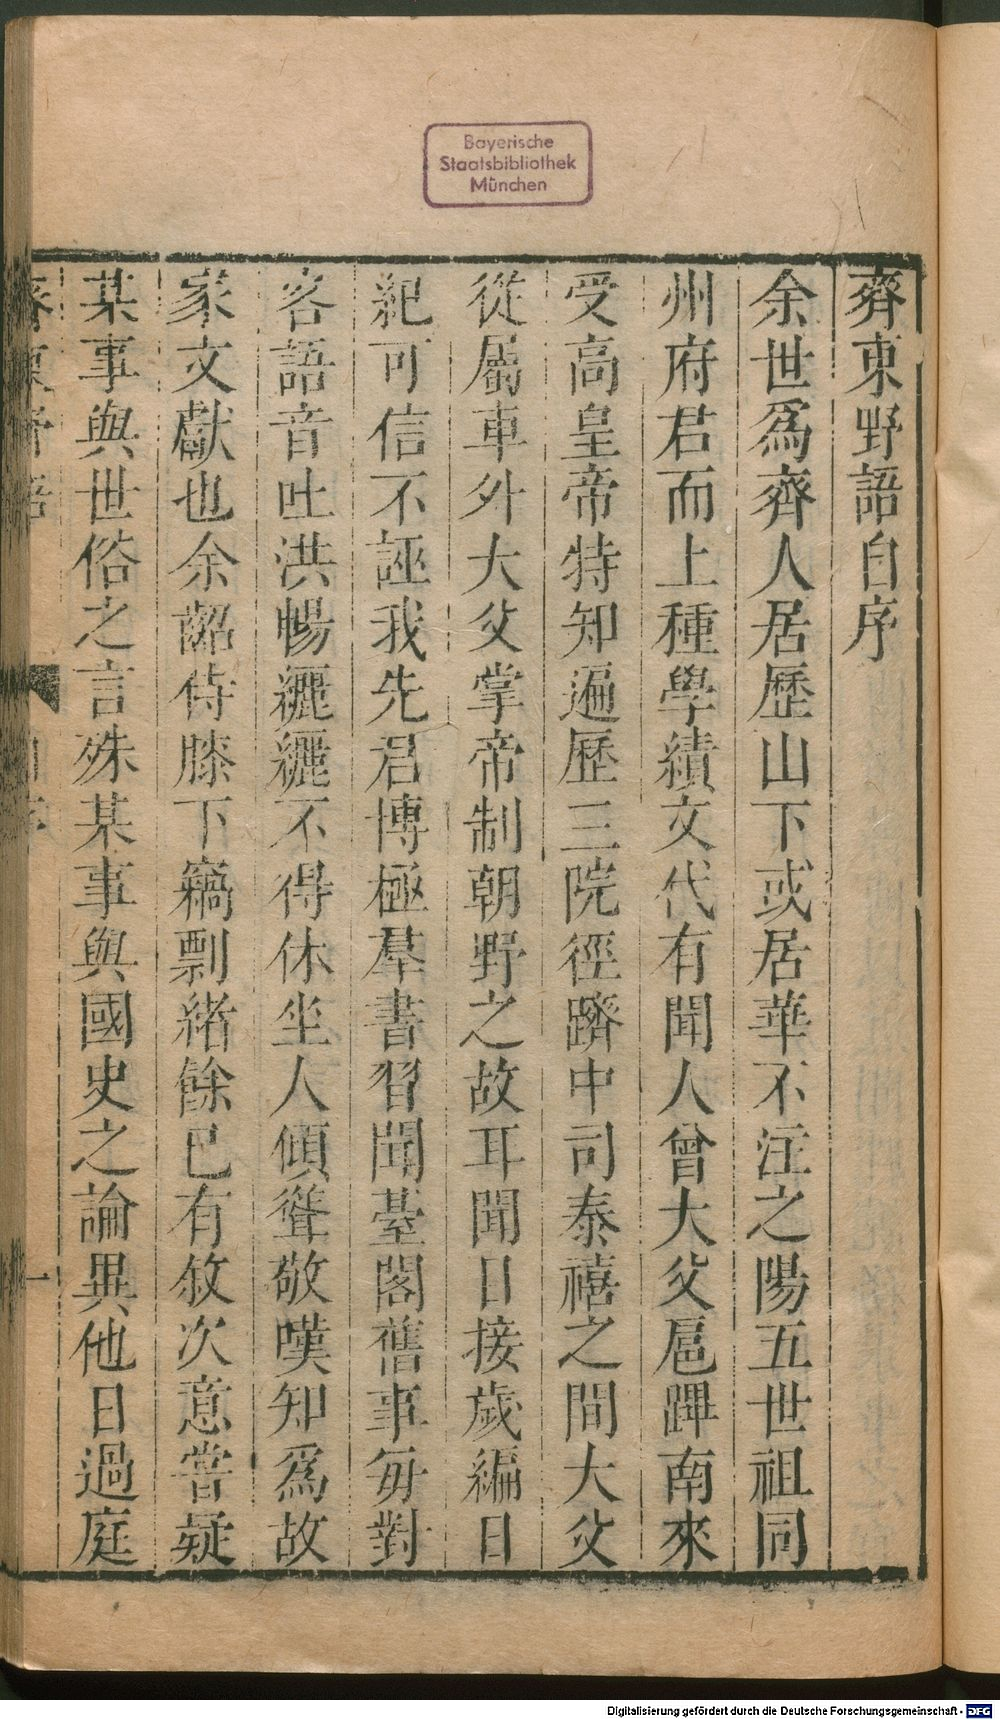 Bayerische
Staatsbibliothek
München
齊東野語自序
余世爲齊人居歷山下或居華不注之陽五世祖同
州府君而上種學績文代有聞人曾大父扈蹕南來
受高皇帝特知遍歷三院徑躋中司泰禧之間大父
從屬車外大父掌帝制朝野之故耳聞日接歲編日
紀可信不誣我先君博極羣書習聞臺閣舊事每對
客語音吐洪暢纚纚不得休坐人傾聳敬嘆知爲故
家文獻也余齠侍膝下竊剽緒餘已有敘次意嘗疑
某事與世俗之言殊某事與國史之論異他日過庭
齊東野語
自序
一
Digitalisierung gefördert durch die Deutsche Forschungsgemeinschaft - DFG